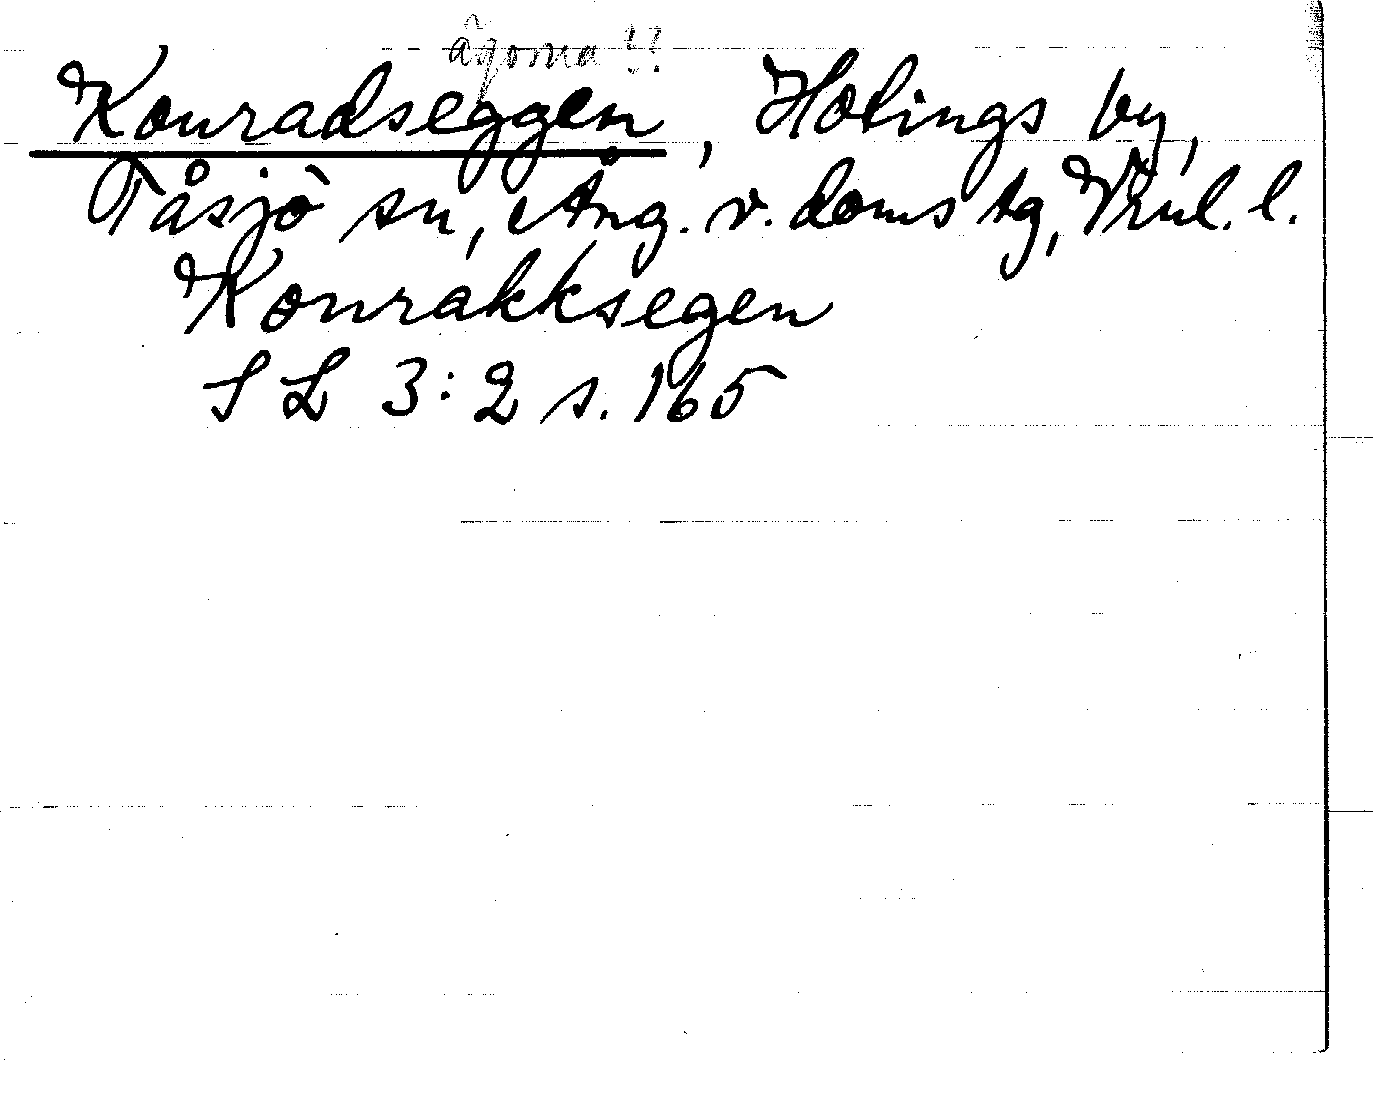 ägorna !!
Konradseggen, Hotings by,
Tåsjö sn, Ång. v. doms tg, Vnl. l.
Konrakksegen
S L 3:2 s. 165